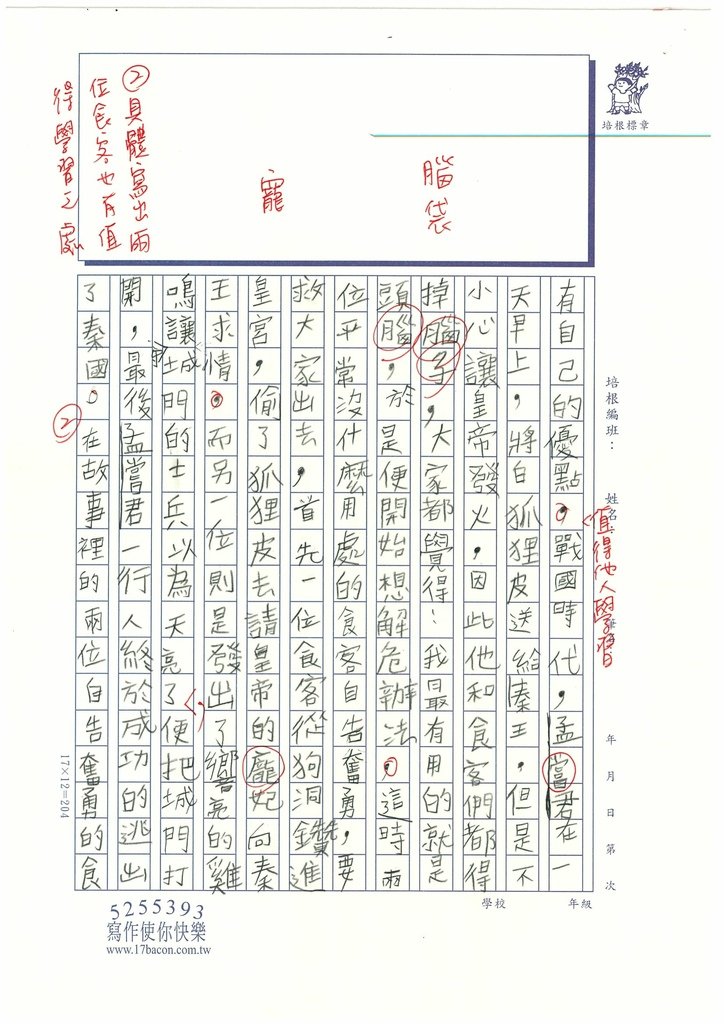 有自己的優點，戰國時代，孟嘗君在一
天早上，將白狐狸皮送給秦王，但是不
小心讓皇帝發火，因此他和食客們都得
掉腦子，大家都覺得：我最有用的就是
頭腦，於是便開始想解危辦法，這時兩
位平常沒什麼用處的食客自告奮勇，要
救大家出去，首先一位食客從狗洞鑽進
皇宮，偷了狐狸皮去請皇帝的龐妃向秦
王求情。而另一位則是發出了響亮的雞
鳴讓城門的士兵以為天亮了便把城門打
開，最後孟嘗君一行人終於成功的逃出
了秦國。在故事裡的兩位自告奮勇的食
值得他人學習
腦袋
寵
②具體寫出兩
位食客也有值
得學習之處
②
培根標章
培根編班：
姓名
年 月 日 第 次
學校
年級
17×12=204
5255393
寫作使你快樂
www.17bacon.com.tw